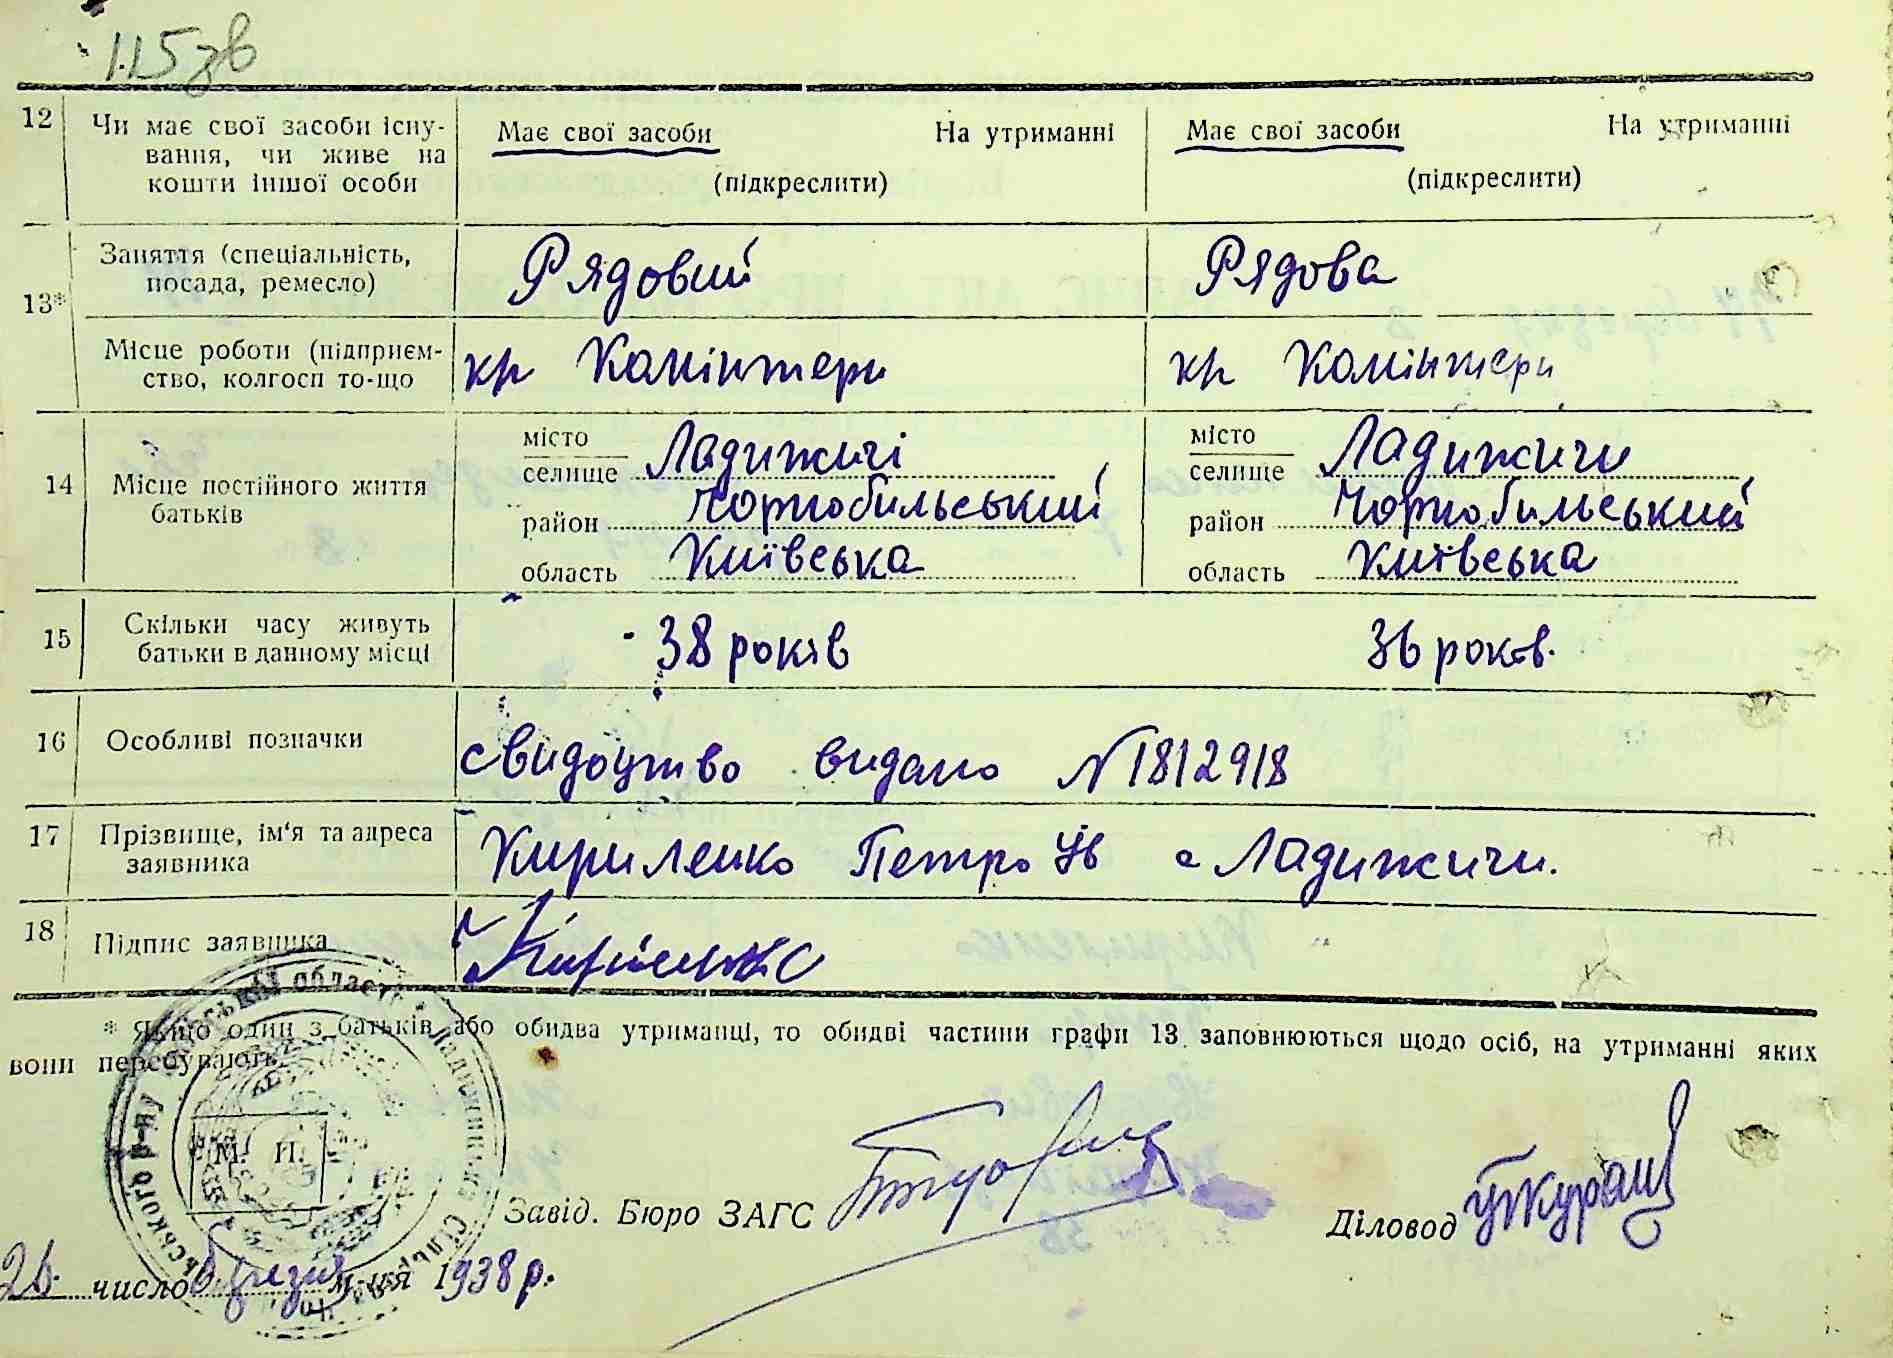 115зв
12 Чи має свої засоби існу- Має свої засоби На утриманні Має свої засоби На утриманні
вання, чи живе на
кошти іншої особи (підкреслити) (підкреслити)
13* Заняття (спеціальність, Рядовий Рядова
посада, ремесло)
Місце роботи (підприєм- кр Комінтерн кр Комінтерн
ство, колгосп то-що
14 Місце постійного життя батьків
місто
селище Ладижичі
район Чорнобильський
область Київська
місто
селище Ладижичи
район Чорнобильський
область Київська
15 Скільки часу живуть 38 років 36 років.
батьки в данному місці
16 Особливі позначки свидоцтво видано N1812918
17 Прізвище, ім'я та адреса Кириленко Петро Ів с Ладижичи.
заявника
18 Підпис заявника
* Якщо один з батьків або обидва утриманці, то обидві частини графи 13 заповнюються щодо осіб, на утриманні яких
вони перебувають.
М. П.
Завід. Бюро ЗАГС
Діловод
26 число березня м-ця 1938 р.